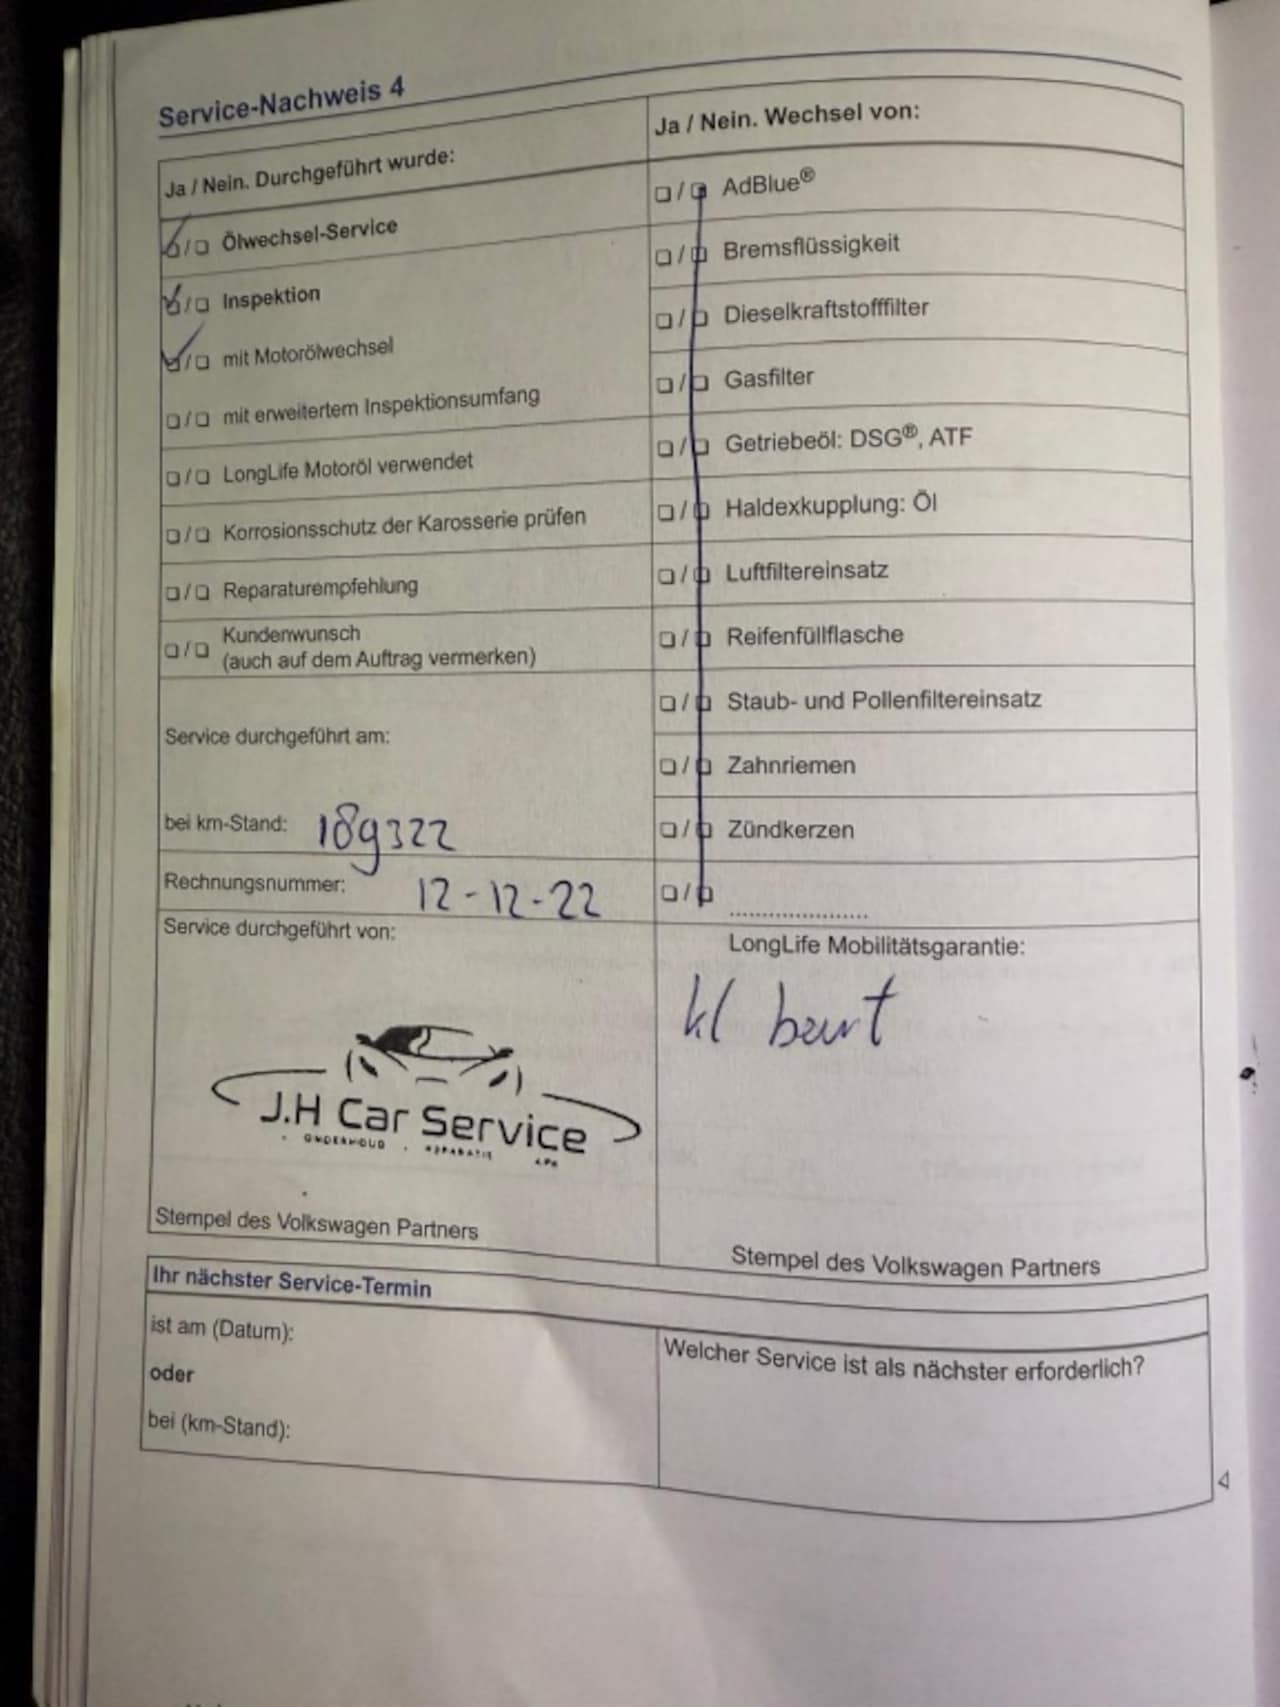 Service-Nachweis 4
Ja / Nein. Durchgeführt wurde:
❑/❑ Ölwechsel-Service
❑/❑ Inspektion
❑/❑ mit Motorölwechsel
❑/❑ mit erweitertem Inspektionsumfang
❑/❑ LongLife Motoröl verwendet
❑/❑ Korrosionsschutz der Karosserie prüfen
❑/❑ Reparaturempfehlung
❑/❑ Kundenwunsch
(auch auf dem Auftrag vermerken)
Service durchgeführt am:
bei km-Stand: 189322
Rechnungsnummer: 12-12-22
Service durchgeführt von:
J.H Car Service
ONDERHOUD . REPARATIE
APK
Stempel des Volkswagen Partners
Ja / Nein. Wechsel von:
❑/❑ AdBlue®
❑/❑ Bremsflüssigkeit
❑/❑ Dieselkraftstofffilter
❑/❑ Gasfilter
❑/❑ Getriebeöl: DSG®, ATF
❑/❑ Haldexkupplung: Öl
❑/❑ Luftfiltereinsatz
❑/❑ Reifenfüllflasche
❑/❑ Staub- und Pollenfiltereinsatz
❑/❑ Zahnriemen
❑/❑ Zündkerzen
❑/❑ .....................
LongLife Mobilitätsgarantie:
kl beurt
Stempel des Volkswagen Partners
Ihr nächster Service-Termin
ist am (Datum):
oder
bei (km-Stand):
Welcher Service ist als nächster erforderlich?